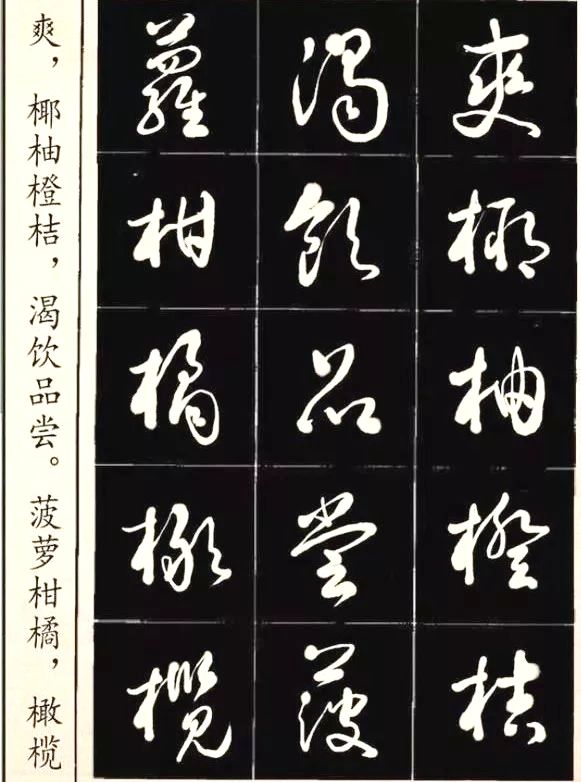 爽椰柚橙桔
渴飲品嘗菠
蘿柑橘橄欖
爽，椰柚橙桔，渴饮品尝。菠萝柑橘，橄榄